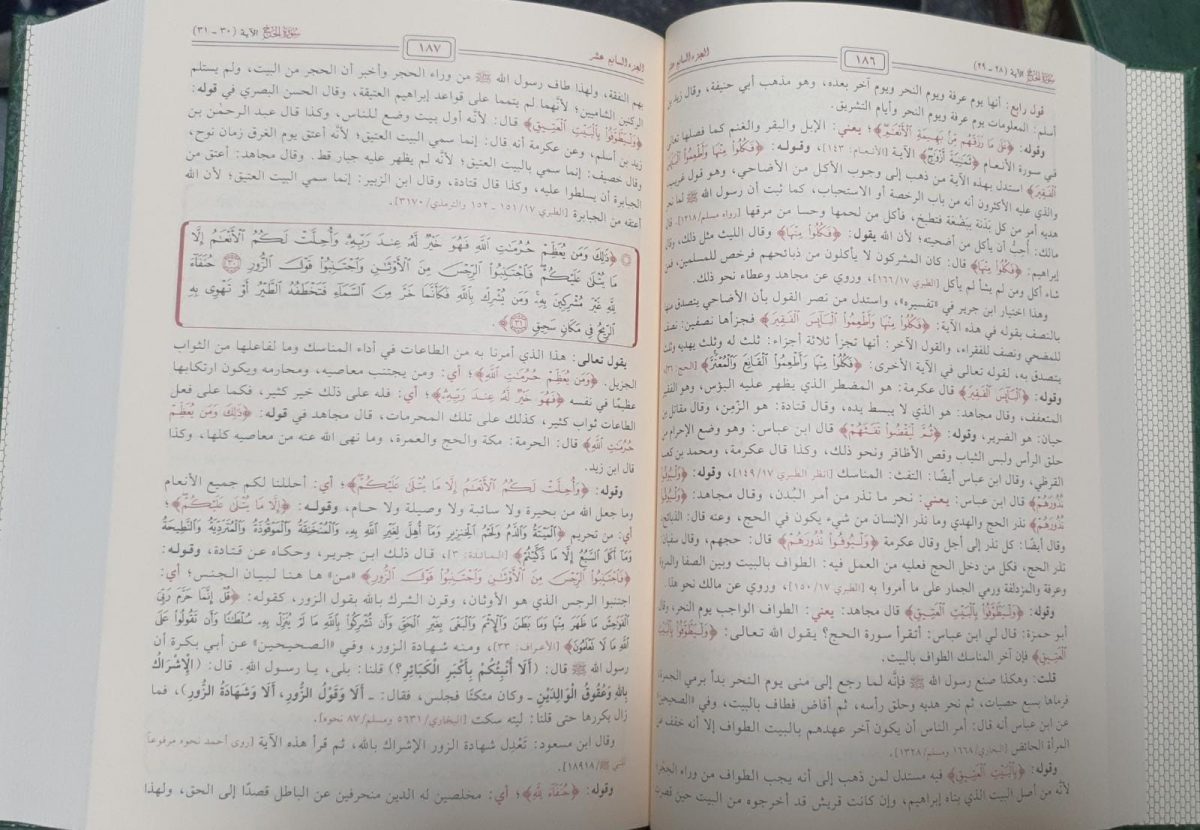 سورة الحج الآية (٢٨ - ٢٩)
١٨٦
الجزء السابع عشر
قول رابع: أنها يوم عرفة ويوم النحر ويوم آخر بعده، وهو مذهب أبي حنيفة، وقال زيد بن
أسلم: المعلومات يوم عرفة ويوم النحر وأيام التشريق.
وقوله: ﴿عَلَىٰ مَا رَزَقَهُم مِّنۢ بَهِيمَةِ ٱلْأَنْعَٰمِ﴾؛ يعني: الإبل والبقر والغنم كما فصلها تعالى
في سورة الأنعام ﴿ثَمَٰنِيَةَ أَزْوَٰجٍ﴾ الآية [الأنعام: ١٤٣]، وقوله: ﴿فَكُلُوا۟ مِنْهَا وَأَطْعِمُوا۟ ٱلْبَآئِسَ
ٱلْفَقِيرَ﴾ استدل بهذه الآية من ذهب إلى وجوب الأكل من الأضاحي، وهو قول غريب،
والذي عليه الأكثرون أنه من باب الرخصة أو الاستحباب، كما ثبت أن رسول الله ﷺ لما نحر
هديه أمر من كل بَدَنة بِبَضْعة فتطبخ، فأكل من لحمها وحسا من مرقها [رواه مسلم/١٢١٨]. قال
مالك: أُحِبُّ أن يأكل من أضحيته؛ لأن الله يقول: ﴿فَكُلُوا۟ مِنْهَا﴾ وقال الليث مثل ذلك، وقال
إبراهيم: ﴿فَكُلُوا۟ مِنْهَا﴾ قال: كان المشركون لا يأكلون من ذبائحهم فرخص للمسلمين، فمن
شاء أكل ومن لم يشأ لم يأكل [الطبري ١٦٦/١٧]، وروي عن مجاهد وعطاء نحو ذلك.
وهذا اختيار ابن جرير في «تفسيره»، واستدل من نصر القول بأن الأضاحي يتصدق منها
بالنصف بقوله في هذه الآية: ﴿فَكُلُوا۟ مِنْهَا وَأَطْعِمُوا۟ ٱلْبَآئِسَ ٱلْفَقِيرَ﴾ فجزأها نصفين: نصف
للمضحي ونصف للفقراء، والقول الآخر: أنها تجزأ ثلاثة أجزاء: ثلث له وثلث يهديه وثلث
يتصدق به، لقوله تعالى في الآية الأخرى: ﴿فَكُلُوا۟ مِنْهَا وَأَطْعِمُوا۟ ٱلْقَانِعَ وَٱلْمُعْتَرَّ﴾ [الحج: ٣٦]
وقوله: ﴿ٱلْبَآئِسَ ٱلْفَقِيرَ﴾ قال عكرمة: هو المضطر الذي يظهر عليه البؤس، وهو الفقير
المتعفف، وقال مجاهد: هو الذي لا يبسط يده، وقال قتادة: هو الزَّمِن، وقال مقاتل بن
حيان: هو الضرير، وقوله: ﴿ثُمَّ لْيَقْضُوا۟ تَفَثَهُمْ﴾ قال ابن عباس: وهو وضع الإحرام من
حلق الرأس ولبس الثياب وقص الأظافر ونحو ذلك، وكذا قال عكرمة، ومحمد بن كعب
القرظي، وقال ابن عباس أيضًا: التفث: المناسك [انظر الطبري ١٤٩/١٧]، وقوله: ﴿وَلْيُوفُوا۟
نُذُورَهُمْ﴾ قال ابن عباس: يعني: نحر ما نذر من أمر البُدن، وقال مجاهد: ﴿وَلْيُوفُوا۟
نُذُورَهُمْ﴾ نذر الحج والهدي وما نذر الإنسان من شيء يكون في الحج، وعنه قال: الذبائح،
وقال أيضًا: كل نذر إلى أجل وقال عكرمة ﴿وَلْيُوفُوا۟ نُذُورَهُمْ﴾ قال: حجهم، وقال سفيان:
نذر الحج، فكل من دخل الحج فعليه من العمل فيه: الطواف بالبيت وبين الصفا والمروة
وعرفة والمزدلفة ورمي الجمار على ما أمروا به [الطبري ١٥٠/١٧]، وروي عن مالك نحو هذا.
وقوله: ﴿وَلْيَطَّوَّفُوا۟ بِٱلْبَيْتِ ٱلْعَتِيقِ﴾ قال مجاهد: يعني: الطواف الواجب يوم النحر، وقال
أبو حمزة: قال لي ابن عباس: أتقرأ سورة الحج؟ يقول الله تعالى: ﴿وَلْيَطَّوَّفُوا۟ بِٱلْبَيْتِ
ٱلْعَتِيقِ﴾ فإن آخر المناسك الطواف بالبيت.
قلت: وهكذا صنع رسول الله ﷺ فإنَّه لما رجع إلى منى يوم النحر بدأ برمي الجمرة،
فرماها بسبع حصيات، ثم نحر هديه وحلق رأسه، ثم أفاض فطاف بالبيت، وفي «الصحيحين»
عن ابن عباس أنه قال: أمر الناس أن يكون آخر عهدهم بالبيت الطواف إلا أنه خفف عن
المرأة الحائض [البخاري/١٦٦٨ ومسلم/١٣٢٨].
وقوله: ﴿بِٱلْبَيْتِ ٱلْعَتِيقِ﴾ فيه مستدل لمن ذهب إلى أنه يجب الطواف من وراء الحجر؛
لأنه من أصل البيت الذي بناه إبراهيم، وإن كانت قريش قد أخرجوه من البيت حين قصرت
سورة الحج الآية (٣٠ - ٣١)
١٨٧
الجزء السابع عشر
بهم النفقة، ولهذا طاف رسول الله ﷺ من وراء الحجر وأخبر أن الحجر من البيت، ولم يستلم
الركنين الشاميين؛ لأنهما لم يتمما على قواعد إبراهيم العتيقة، وقال الحسن البصري في قوله:
﴿وَلْيَطَّوَّفُوا۟ بِٱلْبَيْتِ ٱلْعَتِيقِ﴾ قال: لأنه أول بيت وضع للناس، وكذا قال عبد الرحمٰن بن
زيد بن أسلم، وعن عكرمة أنه قال: إنما سمي البيت العتيق؛ لأنه أعتق يوم الغرق زمان نوح،
وقال خصيف: إنما سمي بالبيت العتيق؛ لأنَّه لم يظهر عليه جبار قط. وقال مجاهد: أعتق من
الجبابرة أن يسلطوا عليه، وكذا قال قتادة، وقال ابن الزبير: إنما سمي البيت العتيق؛ لأن الله
أعتقه من الجبابرة [الطبري ١٥١/١٧ - ١٥٢ والترمذي/٣١٧٠].
﴿ذَٰلِكَ وَمَن يُعَظِّمْ حُرُمَٰتِ ٱللَّهِ فَهُوَ خَيْرٌ لَّهُۥ عِندَ رَبِّهِۦ وَأُحِلَّتْ لَكُمُ ٱلْأَنْعَٰمُ إِلَّا
مَا يُتْلَىٰ عَلَيْكُمْ فَٱجْتَنِبُوا۟ ٱلرِّجْسَ مِنَ ٱلْأَوْثَٰنِ وَٱجْتَنِبُوا۟ قَوْلَ ٱلزُّورِ ٣٠ حُنَفَآءَ
لِلَّهِ غَيْرَ مُشْرِكِينَ بِهِۦ وَمَن يُشْرِكْ بِٱللَّهِ فَكَأَنَّمَا خَرَّ مِنَ ٱلسَّمَآءِ فَتَخْطَفُهُ ٱلطَّيْرُ أَوْ تَهْوِى بِهِ
ٱلرِّيحُ فِى مَكَانٍ سَحِيقٍ ٣١﴾.
يقول تعالى: هذا الذي أمرنا به من الطاعات في أداء المناسك وما لفاعلها من الثواب
الجزيل. ﴿وَمَن يُعَظِّمْ حُرُمَٰتِ ٱللَّهِ﴾؛ أي: ومن يجتنب معاصيه، ومحارمه ويكون ارتكابها
عظيمًا في نفسه ﴿فَهُوَ خَيْرٌ لَّهُۥ عِندَ رَبِّهِۦ﴾؛ أي: فله على ذلك خير كثير، فكما على فعل
الطاعات ثواب كثير، كذلك على تلك المحرمات، قال مجاهد في قوله: ﴿ذَٰلِكَ وَمَن يُعَظِّمْ
حُرُمَٰتِ ٱللَّهِ﴾ قال: الحرمة: مكة والحج والعمرة، وما نهى الله عنه من معاصيه كلها، وكذا
قال ابن زيد.
وقوله: ﴿وَأُحِلَّتْ لَكُمُ ٱلْأَنْعَٰمُ إِلَّا مَا يُتْلَىٰ عَلَيْكُمْ﴾؛ أي: أحللنا لكم جميع الأنعام
وما جعل الله من بحيرة ولا سائبة ولا وصيلة ولا حام، وقوله: ﴿إِلَّا مَا يُتْلَىٰ عَلَيْكُمْ﴾؛
أي: من تحريم ﴿ٱلْمَيْتَةُ وَٱلدَّمُ وَلَحْمُ ٱلْخِنزِيرِ وَمَآ أُهِلَّ لِغَيْرِ ٱللَّهِ بِهِۦ وَٱلْمُنْخَنِقَةُ وَٱلْمَوْقُوذَةُ وَٱلْمُتَرَدِّيَةُ وَٱلنَّطِيحَةُ
وَمَآ أَكَلَ ٱلسَّبُعُ إِلَّا مَا ذَكَّيْتُمْ﴾ [المائدة: ٣]، قال ذلك ابن جرير، وحكاه عن قتادة، وقوله:
﴿فَٱجْتَنِبُوا۟ ٱلرِّجْسَ مِنَ ٱلْأَوْثَٰنِ وَٱجْتَنِبُوا۟ قَوْلَ ٱلزُّورِ﴾ «من» ها هنا لبيان الجنس؛ أي:
اجتنبوا الرجس الذي هو الأوثان، وقرن الشرك بالله بقول الزور، كقوله: ﴿قُلْ إِنَّمَا حَرَّمَ رَبِّىَ
ٱلْفَوَٰحِشَ مَا ظَهَرَ مِنْهَا وَمَا بَطَنَ وَٱلْإِثْمَ وَٱلْبَغْىَ بِغَيْرِ ٱلْحَقِّ وَأَن تُشْرِكُوا۟ بِٱللَّهِ مَا لَمْ يُنَزِّلْ بِهِۦ سُلْطَٰنًا وَأَن تَقُولُوا۟ عَلَى
ٱللَّهِ مَا لَا تَعْلَمُونَ﴾ [الأعراف: ٣٣]، ومنه شهادة الزور، وفي «الصحيحين» عن أبي بكرة أن
رسول الله ﷺ قال: (أَلَا أُنَبِّئُكُمْ بِأَكْبَرِ الْكَبَائِرِ؟) قلنا: بلى، يا رسول الله. قال: (الإِشْرَاكُ
بِاللهِ وَعُقُوقُ الْوَالِدَيْنِ ـ وكان متكئًا فجلس، فقال: ـ أَلَا وَقَوْلُ الزُّورِ، أَلَا وَشَهَادَةُ الزُّورِ)، فما
زال يكررها حتى قلنا: ليته سكت [البخاري/٥٦٣١ ومسلم/٨٧ نحوه].
وقال ابن مسعود: تَعْدِل شهادة الزور الإشراك بالله، ثم قرأ هذه الآية [روى أحمد نحوه مرفوعًا
للنبي ﷺ/١٨٩١٨].
وقوله: ﴿حُنَفَآءَ لِلَّهِ﴾؛ أي: مخلصين له الدين منحرفين عن الباطل قصدًا إلى الحق، ولهذا